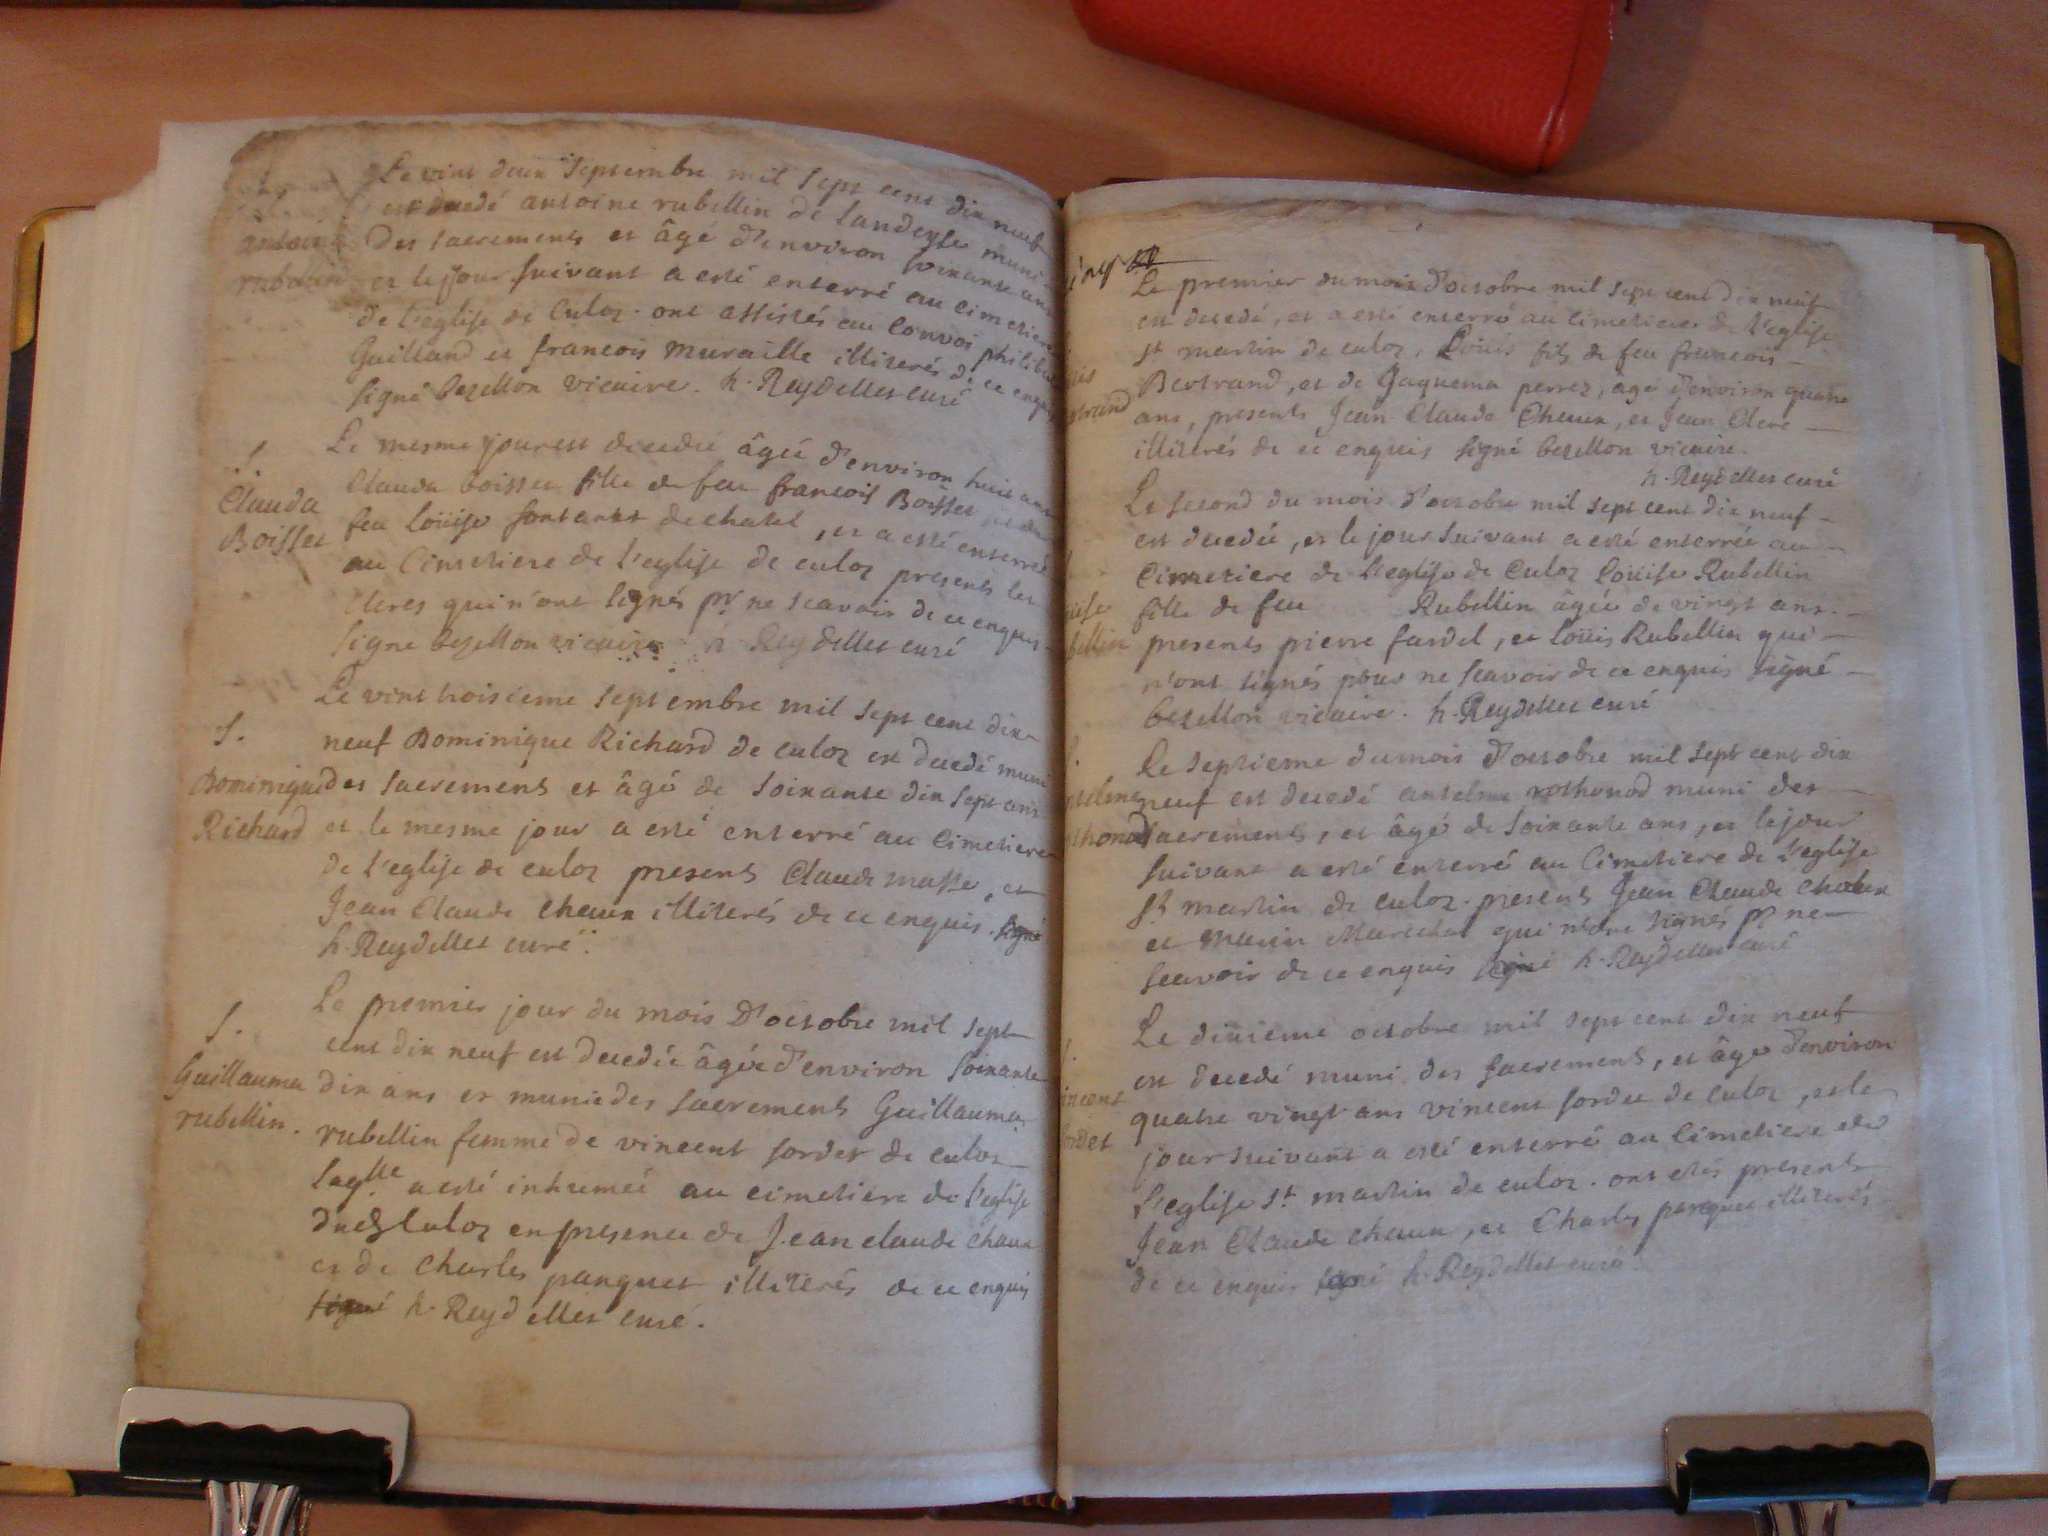 Le vint deux Septembre mil sept cent dix neuf
est decedé antoine rubellin de landeyse muni
antoine
rubellin
des sacrements et âgé d'environ soixante ans
et le jour suivant a esté enterré au cimetiere
de l'eglise de Culoz. ont assistés au convoi philibert
Guilland et francois muraille illiterés de ce enquis
signé bezellon vicaire. h. Reydellet curé
Le mesme jour est decedée âgée d'environ huit ans
S.
Clauda
Boisset
Clauda boisset fille de feu francois Boisset et de
feu loüise fontanet de chatel, et a esté enterrée
au Cimetiere de l'eglise de culoz presents les
cleres qui n'ont signés pr ne scavoir de ce enquis
signe bezellon vicaire h Reydellet curé
Le vint troisieme septembre mil sept cent dix
S.
Dominique
Richard
neuf Dominique Richard de culoz est decedé muni
des sacrements et âgé de soixante dix sept ans
et le mesme jour a esté enterré au Cimetiere
de l'eglise de culoz presents Claude masse, et
Jean Claude chaux illiterés de ce enquis. signé
h. Reydellet curé.
Le premier jour du mois d'octobre mil sept
S.
Guillauma
rubellin.
cent dix neuf est decedée âgée d'environ soixante
dix ans et munie des sacrements Guillauma
rubellin femme de vincent sordet de culoz
laqlle a esté inhumée au cimetiere de l'eglise
dudt Culoz en presence de Jean claude chaux
et de Charles panquet illiterés de ce enquis
signé h. Reydellet curé.
Le premier du mois d'octobre mil sept cent dix neuf
est decedé, et a esté enterré au Cimetiere de l'eglise
st martin de culoz, Loüis fils de feu francois
Bertrand, et de Jaquema perrez, âgé d'environ quatre
ans, presents Jean Claude Chaux, et Jean Clere
illiterés de ce enquis signé bezellon vicaire.
h. Reydellet curé
Le second du mois d'octobre mil sept cent dix neuf
est decedée, et le jour suivant a esté enterrée au
Cimetiere de l'eglise de Culoz loüise Rubellin
fille de feu Rubellin âgée de vingt ans.
presents pierre fardel, et loüis Rubellin qui
n'ont signés pour ne scavoir de ce enquis signé
bezellon vicaire. h. Reydellet curé
Le septieme du mois d'octobre mil sept cent dix
neuf est decedé anselme rothonod muni des
sacrements, et âgé de soixante ans, et le jour
suivant a esté enterré au Cimetiere de l'eglise
st martin de culoz. presents Jean Claude chaux
et Marin Marechal qui n'ont signés pr ne
scavoir de ce enquis signé h. Reydellet curé
Le dixieme octobre mil sept cent dix neuf
est decedé muni des sacrements, et âgé d'environ
quatre vingt ans vincent sordet de culoz, et le
jour suivant a esté enterré au Cimetiere de
l'eglise st martin de culoz. ont etés presents
Jean Claude chaux, et Charles panquet illiterés
de ce enquis signé h. Reydellet curé.